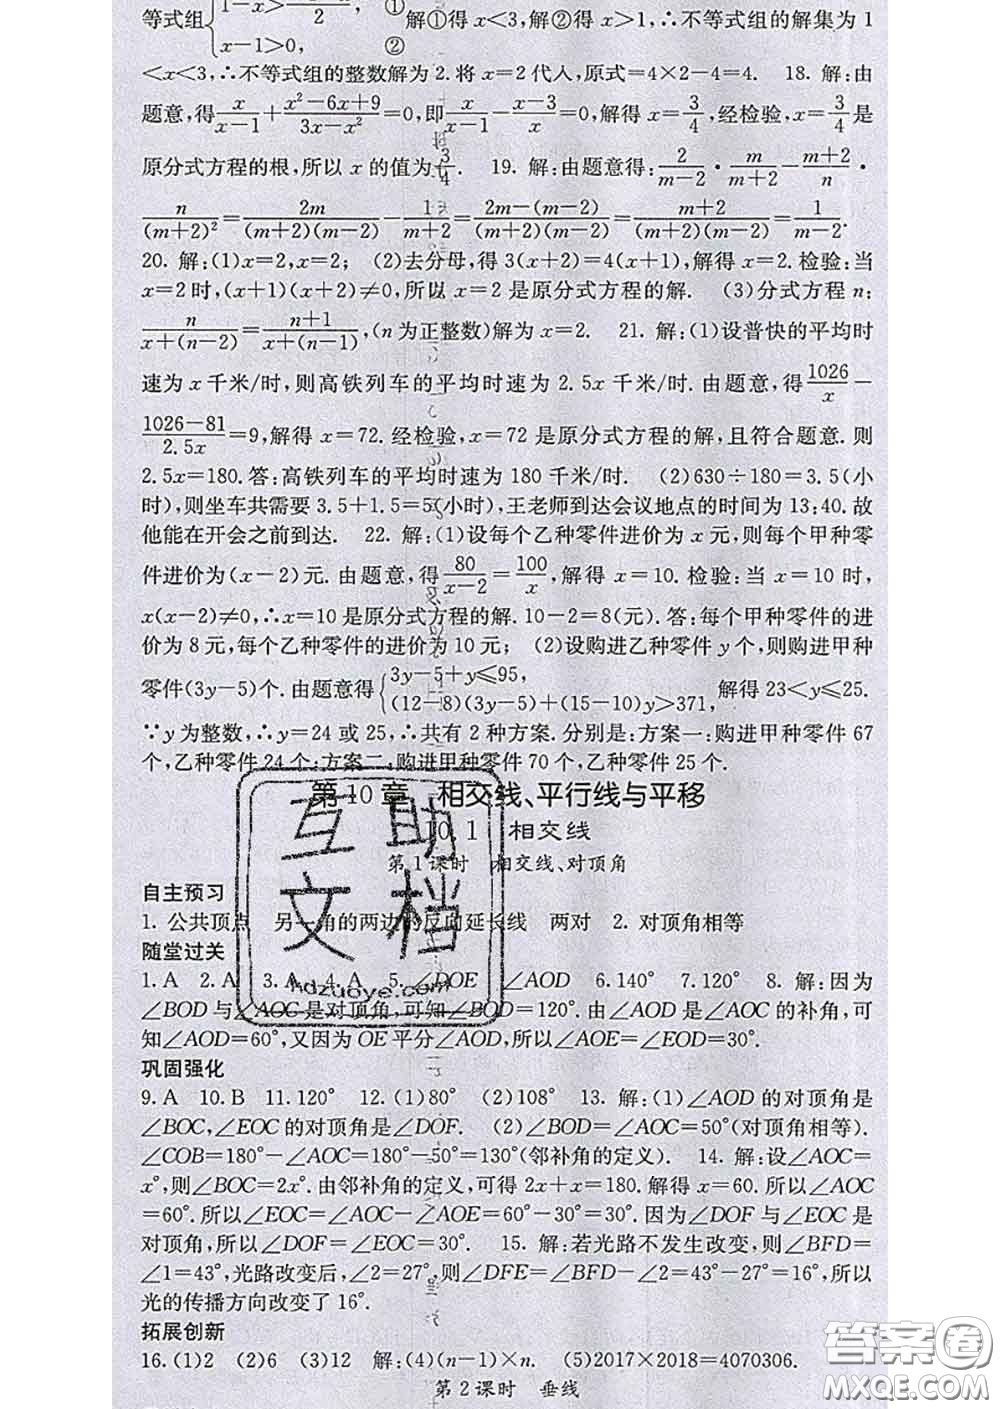 等式组{1-x>...2, ①
x-1>0, ② 解①得x<3,解②得x>1,∴不等式组的解集为1
<x<3,∴不等式组的整数解为2.将x=2代人,原式=4×2-4=4. 18. 解:由
题意,得x/(x-1)+(x²-6x+9)/(3x-x²)=0,即x/(x-1)-(x-3)/x=0,解得x=3/4,经检验,x=3/4是
原分式方程的根,所以x的值为3/4. 19. 解:由题意得:2/(m-2)·m/(m+2)-(m+2)/n·
n/(m+2)²=2m/(m+2)(m-2)-1/(m+2)=2m-(m-2)/(m+2)(m-2)=m+2/(m+2)(m-2)=1/(m-2).
20. 解:(1)x=2,x=2; (2)去分母,得3(x+2)=4(x+1),解得x=2.检验:当
x=2时,(x+1)(x+2)≠0,所以x=2是原分式方程的解. (3)分式方程n:
n/(x+(n-2))=(n+1)/(x+(n-1)),(n为正整数)解为x=2. 21. 解:(1)设普快的平均时
速为x千米/时,则高铁列车的平均时速为2.5x千米/时.由题意,得1026/x-
(1026-81)/2.5x=9,解得x=72.经检验,x=72是原分式方程的解,且符合题意.则
2.5x=180.答:高铁列车的平均时速为180千米/时. (2)630÷180=3.5(小
时),则坐车共需要3.5+1.5=5(小时),王老师到达会议地点的时间为13:40.故
他能在开会之前到达. 22. 解:(1)设每个乙种零件进价为x元,则每个甲种零
件进价为(x-2)元.由题意,得80/(x-2)=100/x,解得x=10.检验:当x=10时,
x(x-2)≠0,∴x=10是原分式方程的解.10-2=8(元).答:每个甲种零件的进
价为8元,每个乙种零件的进价为10元; (2)设购进乙种零件y个,则购进甲种
零件(3y-5)个.由题意得{3y-5+y≤95,
(12-8)(3y-5)+(15-10)y>371, 解得23<y≤25.
∵y为整数,∴y=24或25,∴共有2种方案.分别是:方案一:购进甲种零件67
个,乙种零件24个;方案二:购进甲种零件70个,乙种零件25个.
第10章 相交线、平行线与平移
10.1 相交线
第1课时 相交线、对顶角
自主预习
1. 公共顶点 另一角的两边的反向延长线 两对 2. 对顶角相等
随堂过关
1.A 2.A 3.A 4.A 5.∠DOE ∠AOD 6.140° 7.120° 8. 解:因为
∠BOD与∠AOC是对顶角,可知∠BOD=120°.由∠AOD是∠AOC的补角,可
知∠AOD=60°,又因为OE平分∠AOD,所以∠AOE=∠EOD=30°.
巩固强化
9.A 10.B 11.120° 12.(1)80° (2)108° 13. 解:(1)∠AOD的对顶角是
∠BOC,∠EOC的对顶角是∠DOF. (2)∠BOD=∠AOC=50°(对顶角相等).
∠COB=180°-∠AOC=180°-50°=130°(邻补角的定义). 14. 解:设∠AOC=
x°,则∠BOC=2x°.由邻补角的定义,可得2x+x=180.解得x=60.所以∠AOC
=60°.所以∠EOC=∠AOC-∠AOE=60°-30°=30°.因为∠DOF与∠EOC是
对顶角,所以∠DOF=∠EOC=30°. 15. 解:若光路不发生改变,则∠BFD=
∠1=43°,光路改变后,∠2=27°,则∠DFE=∠BFD-∠2=43°-27°=16°,所以
光的传播方向改变了16°.
拓展创新
16.(1)2 (2)6 (3)12 解:(4)(n-1)×n. (5)2017×2018=4070306.
第2课时 垂线
互助
文档
hdzuoye.com
答案圈
MXQE.COM